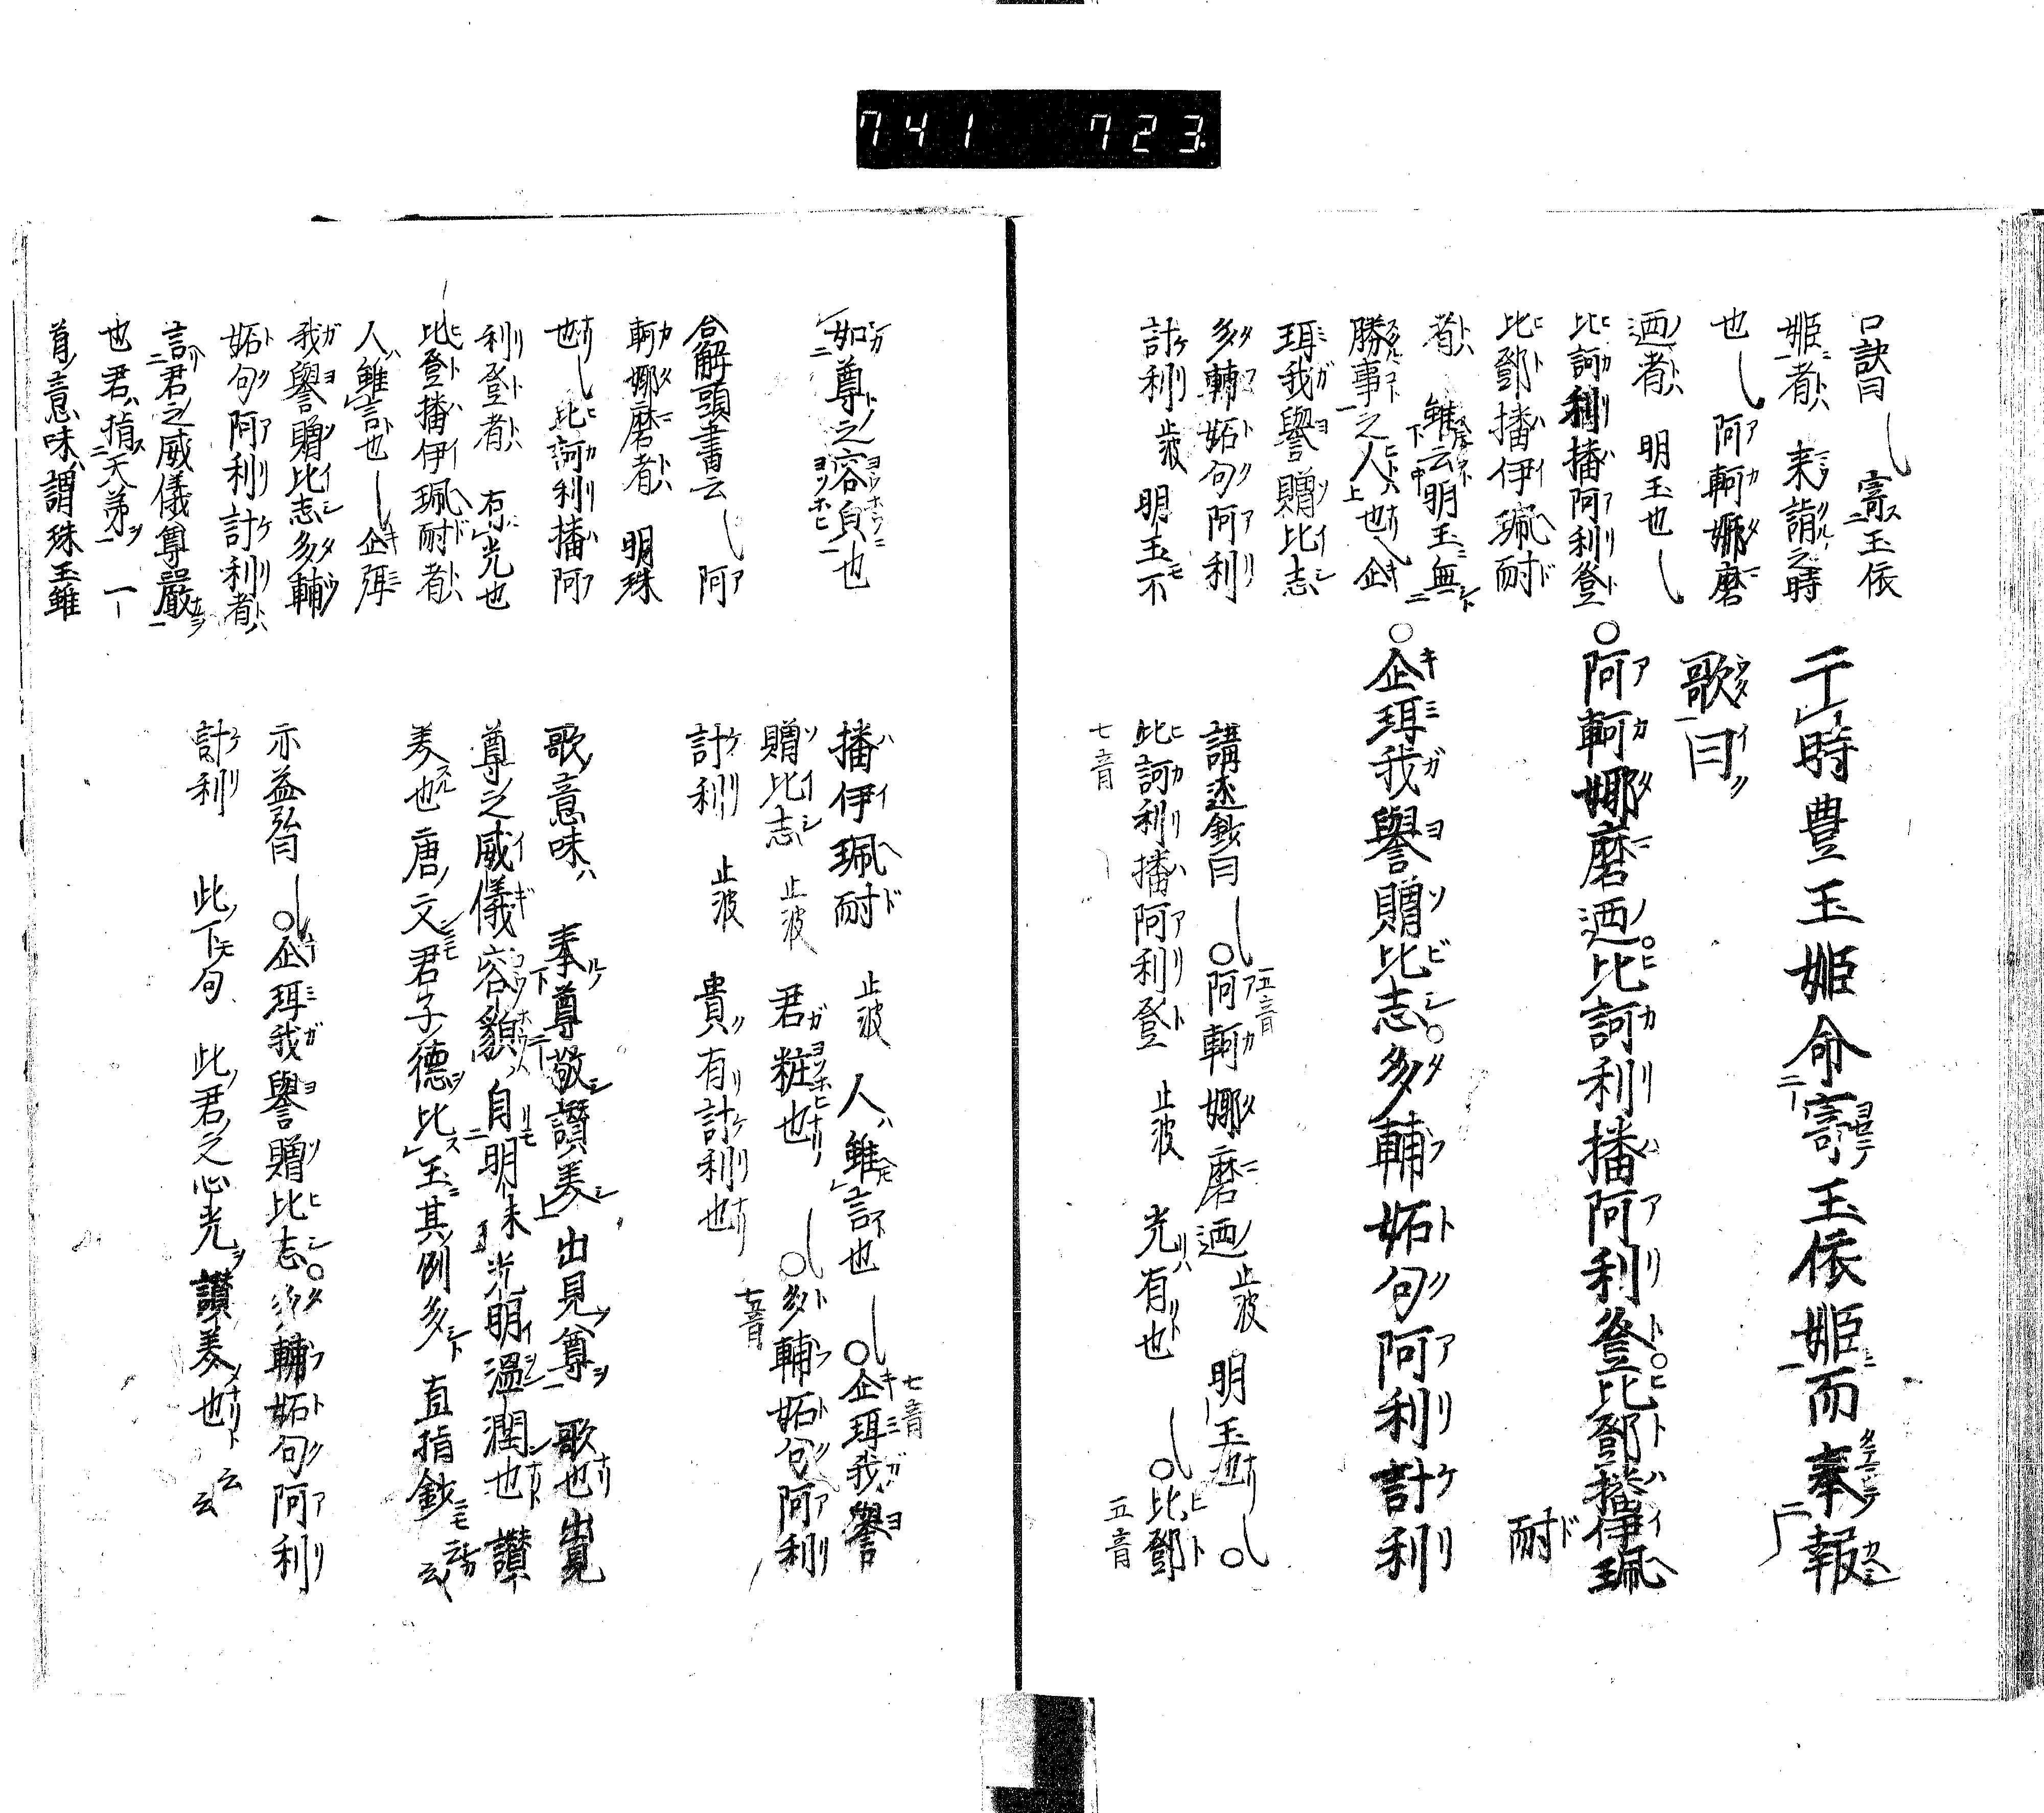 741 723
口訣曰 寄玉依
姫者 来詣之時
也 阿軻娜磨
迺者 明玉也
比訶利播阿利登
比鄧播伊珮耐
者 雖云明玉無
勝事之人也 企
珥我譽贈比志
多輔妬句阿利
計利 止波 明玉不
于時豊玉姫命寄玉依姫而奉報
歌曰
○阿軻娜磨迺○比訶利播阿利登○比鄧播伊珮
耐
○企珥我譽贈比志○多輔妬句阿利計利
講述鈔曰 ○阿軻娜磨迺 止波 明玉也 ○
五音
比訶利播阿利登 止波 光有也 ○比鄧
七音 五音
如尊之容皃也
合解頭書云 阿
軻娜磨者 明珠
也 比訶利播阿
利登者 有光也
比登播伊珮耐者
人雖言也 企弭
我譽贈比志多輔
妬句阿利計利者
言君之威儀尊嚴
也君指天弟一
首意味謂珠玉雖
播伊珮耐 止波 人雖言也 ○企珥我譽
七音
贈比志 止波 君粧也 ○多輔妬句阿利
七五音
計利 止波 貴有計利也
歌意味 奉尊敬讃美出見尊歌也出見
尊之威儀容貌自明珠光明温潤也讃
美也唐文君子德比玉其例多 直指鈔 云云
示益翁曰 ○企珥我譽贈比志○多輔妬句阿利
計利 此下句 此君之心光讃美也 云云